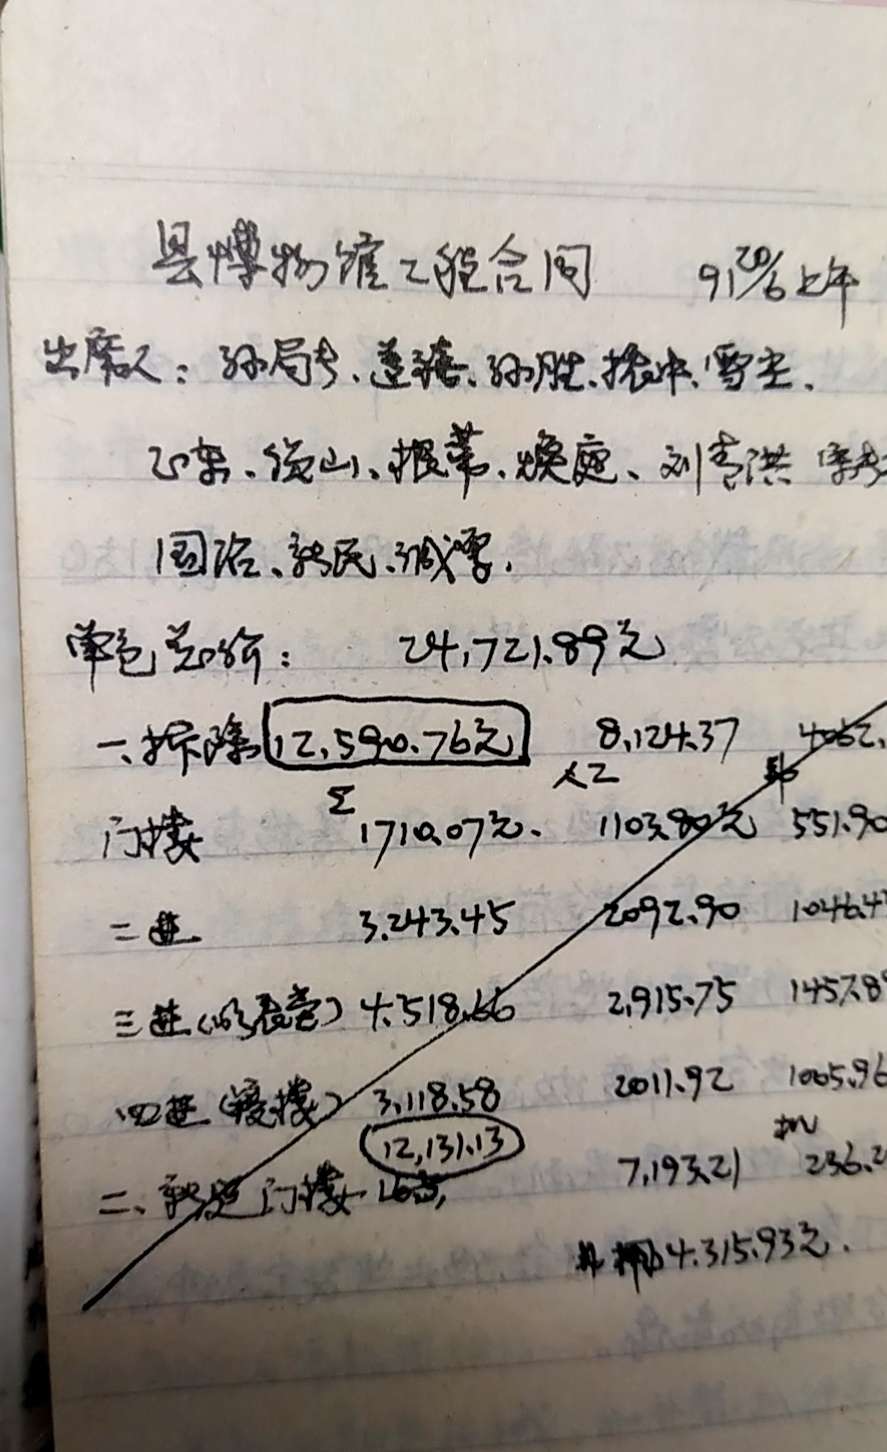 县博物馆工程合同 91 20/6 上午
出席人：孙局长、莲禧、孙胜、振冲、雪宝、
山、根蒂、焕庭、刘青洪
国治、新民、诚雪.
单包总价： 24,721.89元
一、拆除 12,590.76元 8,124.37 4062.
Σ 人工
门楼 1710.07元. 1103.80元 551.90
二进 3.243.45 2092.90 1046.4
三进( ) 4.518.66 2,915.75 1457.8
四进(接楼) 3.118.58 2011.92 1005.96
12,131.13 7,193.21 236.2
二、新建门楼
4.315.93元.